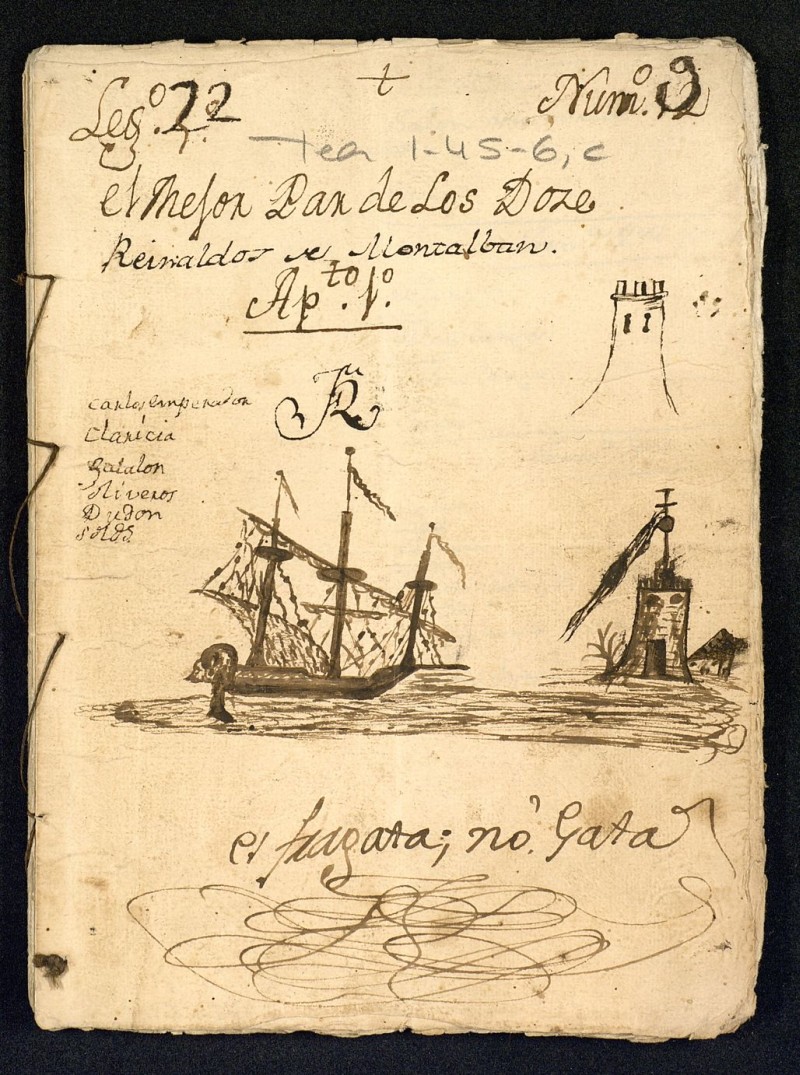 Leg.º 22
Num.º 9
Tea 1-45-6, c
el Mejor Par de Los Doze
Reinaldos de Montalban.
Ap.to 1.º
Carlos emperador
Claricia
Galalon
oliveros
Dudon
solds
es fragata; nò. Gata